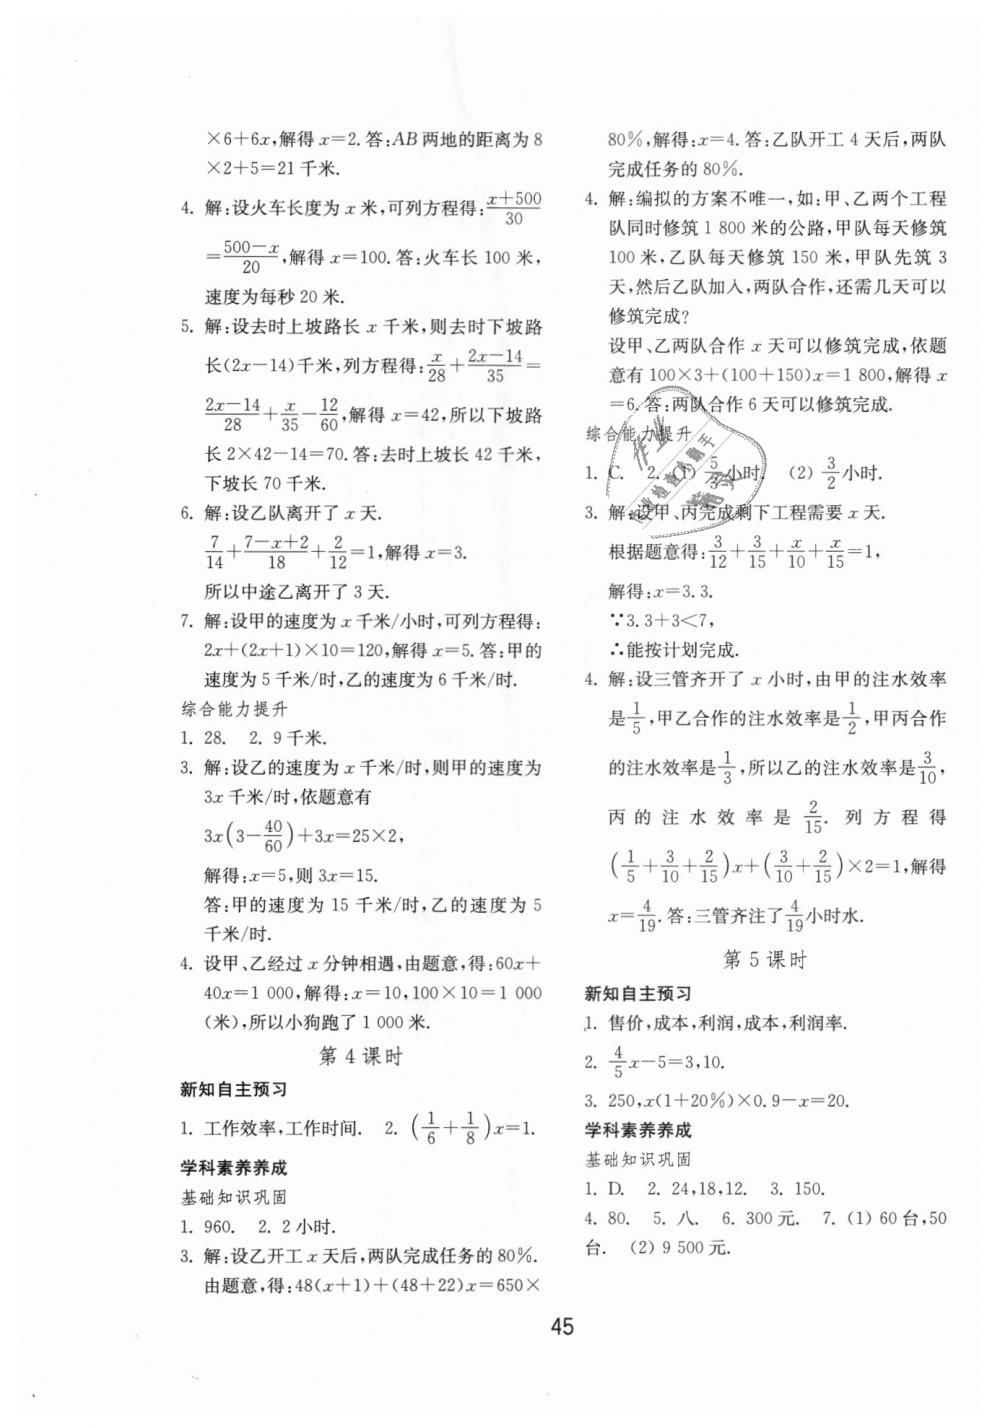 ×6+6x,解得 x=2. 答:AB 两地的距离为 8
×2+5=21 千米.
4. 解:设火车长度为 x 米,可列方程得:(x+500)/30
=(500-x)/20,解得 x=100. 答:火车长 100 米,
速度为每秒 20 米.
5. 解:设去时上坡路长 x 千米,则去时下坡路
长(2x-14)千米,列方程得:x/28+(2x-14)/35=
(2x-14)/28+x/35-12/60,解得 x=42,所以下坡路
长 2×42-14=70. 答:去时上坡长 42 千米,
下坡长 70 千米.
6. 解:设乙队离开了 x 天.
7/14+(7-x+2)/18+2/12=1,解得 x=3.
所以中途乙离开了 3 天.
7. 解:设甲的速度为 x 千米/小时,可列方程得:
2x+(2x+1)×10=120,解得 x=5. 答:甲的
速度为 5 千米/时,乙的速度为 6 千米/时.
综合能力提升
1. 28. 2. 9 千米.
3. 解:设乙的速度为 x 千米/时,则甲的速度为
3x 千米/时,依题意有
3x(3-40/60)+3x=25×2,
解得:x=5,则 3x=15.
答:甲的速度为 15 千米/时,乙的速度为 5
千米/时.
4. 设甲、乙经过 x 分钟相遇,由题意,得:60x+
40x=1 000,解得:x=10,100×10=1 000
(米),所以小狗跑了 1 000 米.
第 4 课时
新知自主预习
1. 工作效率,工作时间. 2. (1/6+1/8)x=1.
学科素养养成
基础知识巩固
1. 960. 2. 2 小时.
3. 解:设乙开工 x 天后,两队完成任务的 80%.
由题意,得:48(x+1)+(48+22)x=650×
80%,解得:x=4. 答:乙队开工 4 天后,两队
完成任务的 80%.
4. 解:编拟的方案不唯一,如:甲、乙两个工程
队同时修筑 1 800 米的公路,甲队每天修筑
100 米,乙队每天修筑 150 米,甲队先筑 3
天,然后乙队加入,两队合作,还需几天可以
修筑完成?
设甲、乙两队合作 x 天可以修筑完成,依题
意有 100×3+(100+150)x=1 800,解得 x
=6. 答:两队合作 6 天可以修筑完成.
综合能力提升
1. C. 2. (1) 5/3 小时. (2) 3/2 小时.
3. 解:设甲、丙完成剩下工程需要 x 天.
根据题意得:3/12+3/15+x/10+x/15=1,
解得:x=3.3.
∵3.3+3<7,
∴能按计划完成.
4. 解:设三管齐开了 x 小时,由甲的注水效率
是1/5,甲乙合作的注水效率是1/2,甲丙合作
的注水效率是1/3,所以乙的注水效率是3/10,
丙的注水效率是 2/15. 列方程得
(1/5+3/10+2/15)x+(3/10+2/15)×2=1,解得
x=4/19. 答:三管齐注了4/19小时水.
第 5 课时
新知自主预习
1. 售价,成本,利润,成本,利润率.
2. 4/5x-5=3,10.
3. 250,x(1+20%)×0.9-x=20.
学科素养养成
基础知识巩固
1. D. 2. 24,18,12. 3. 150.
4. 80. 5. 八. 6. 300 元. 7. (1) 60 台,50
台. (2) 9 500 元.
45